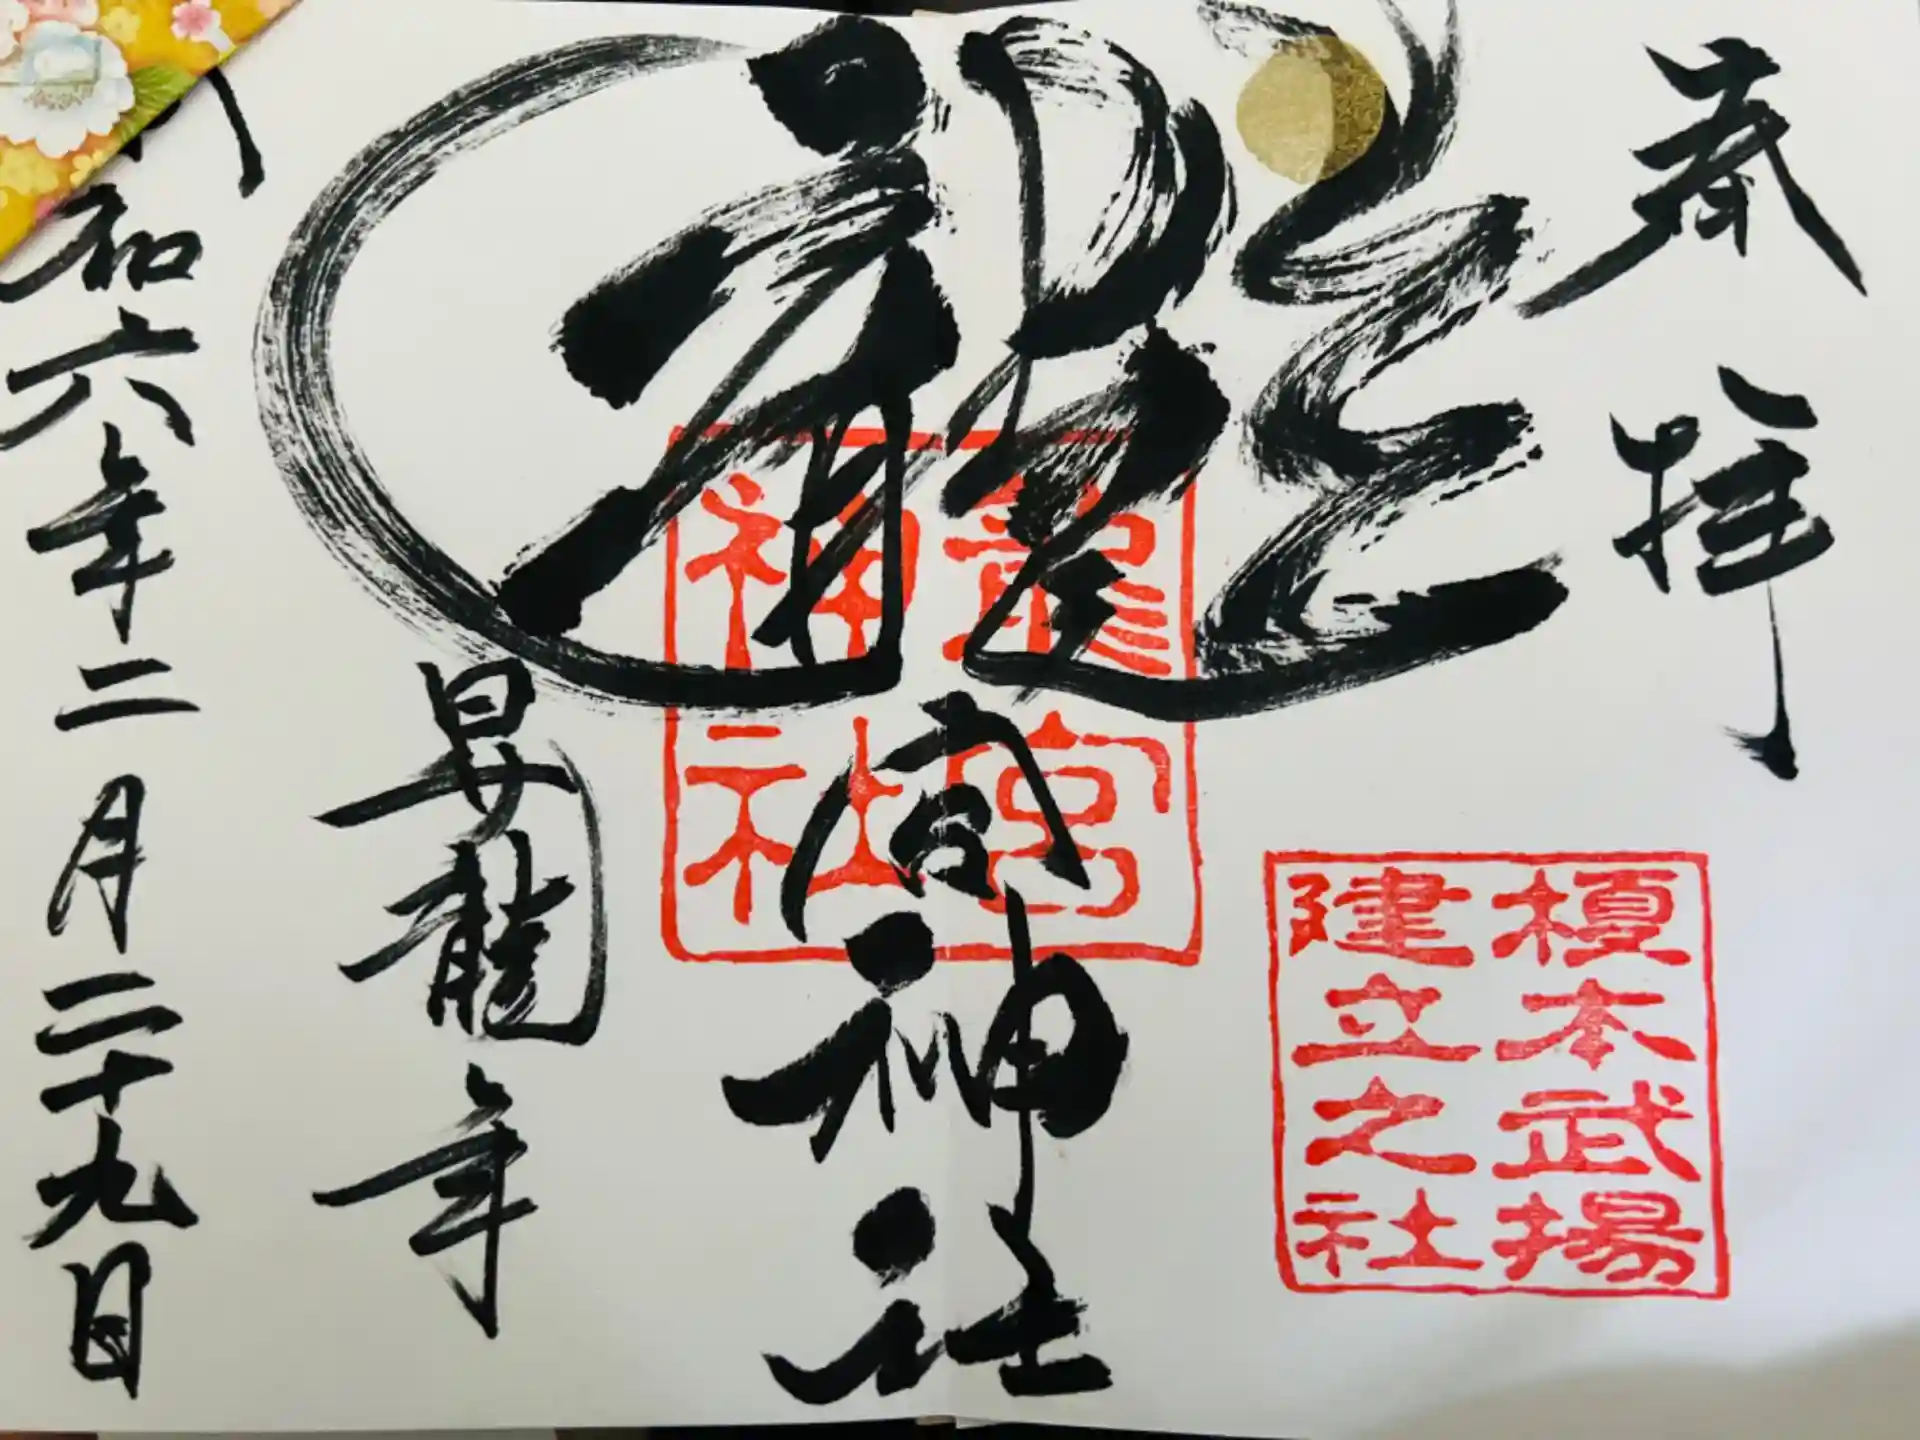 奉拝
榎本武揚
建立之社
龍宮神社
龍宮
神社
昇龍年
和六年二月二十九日